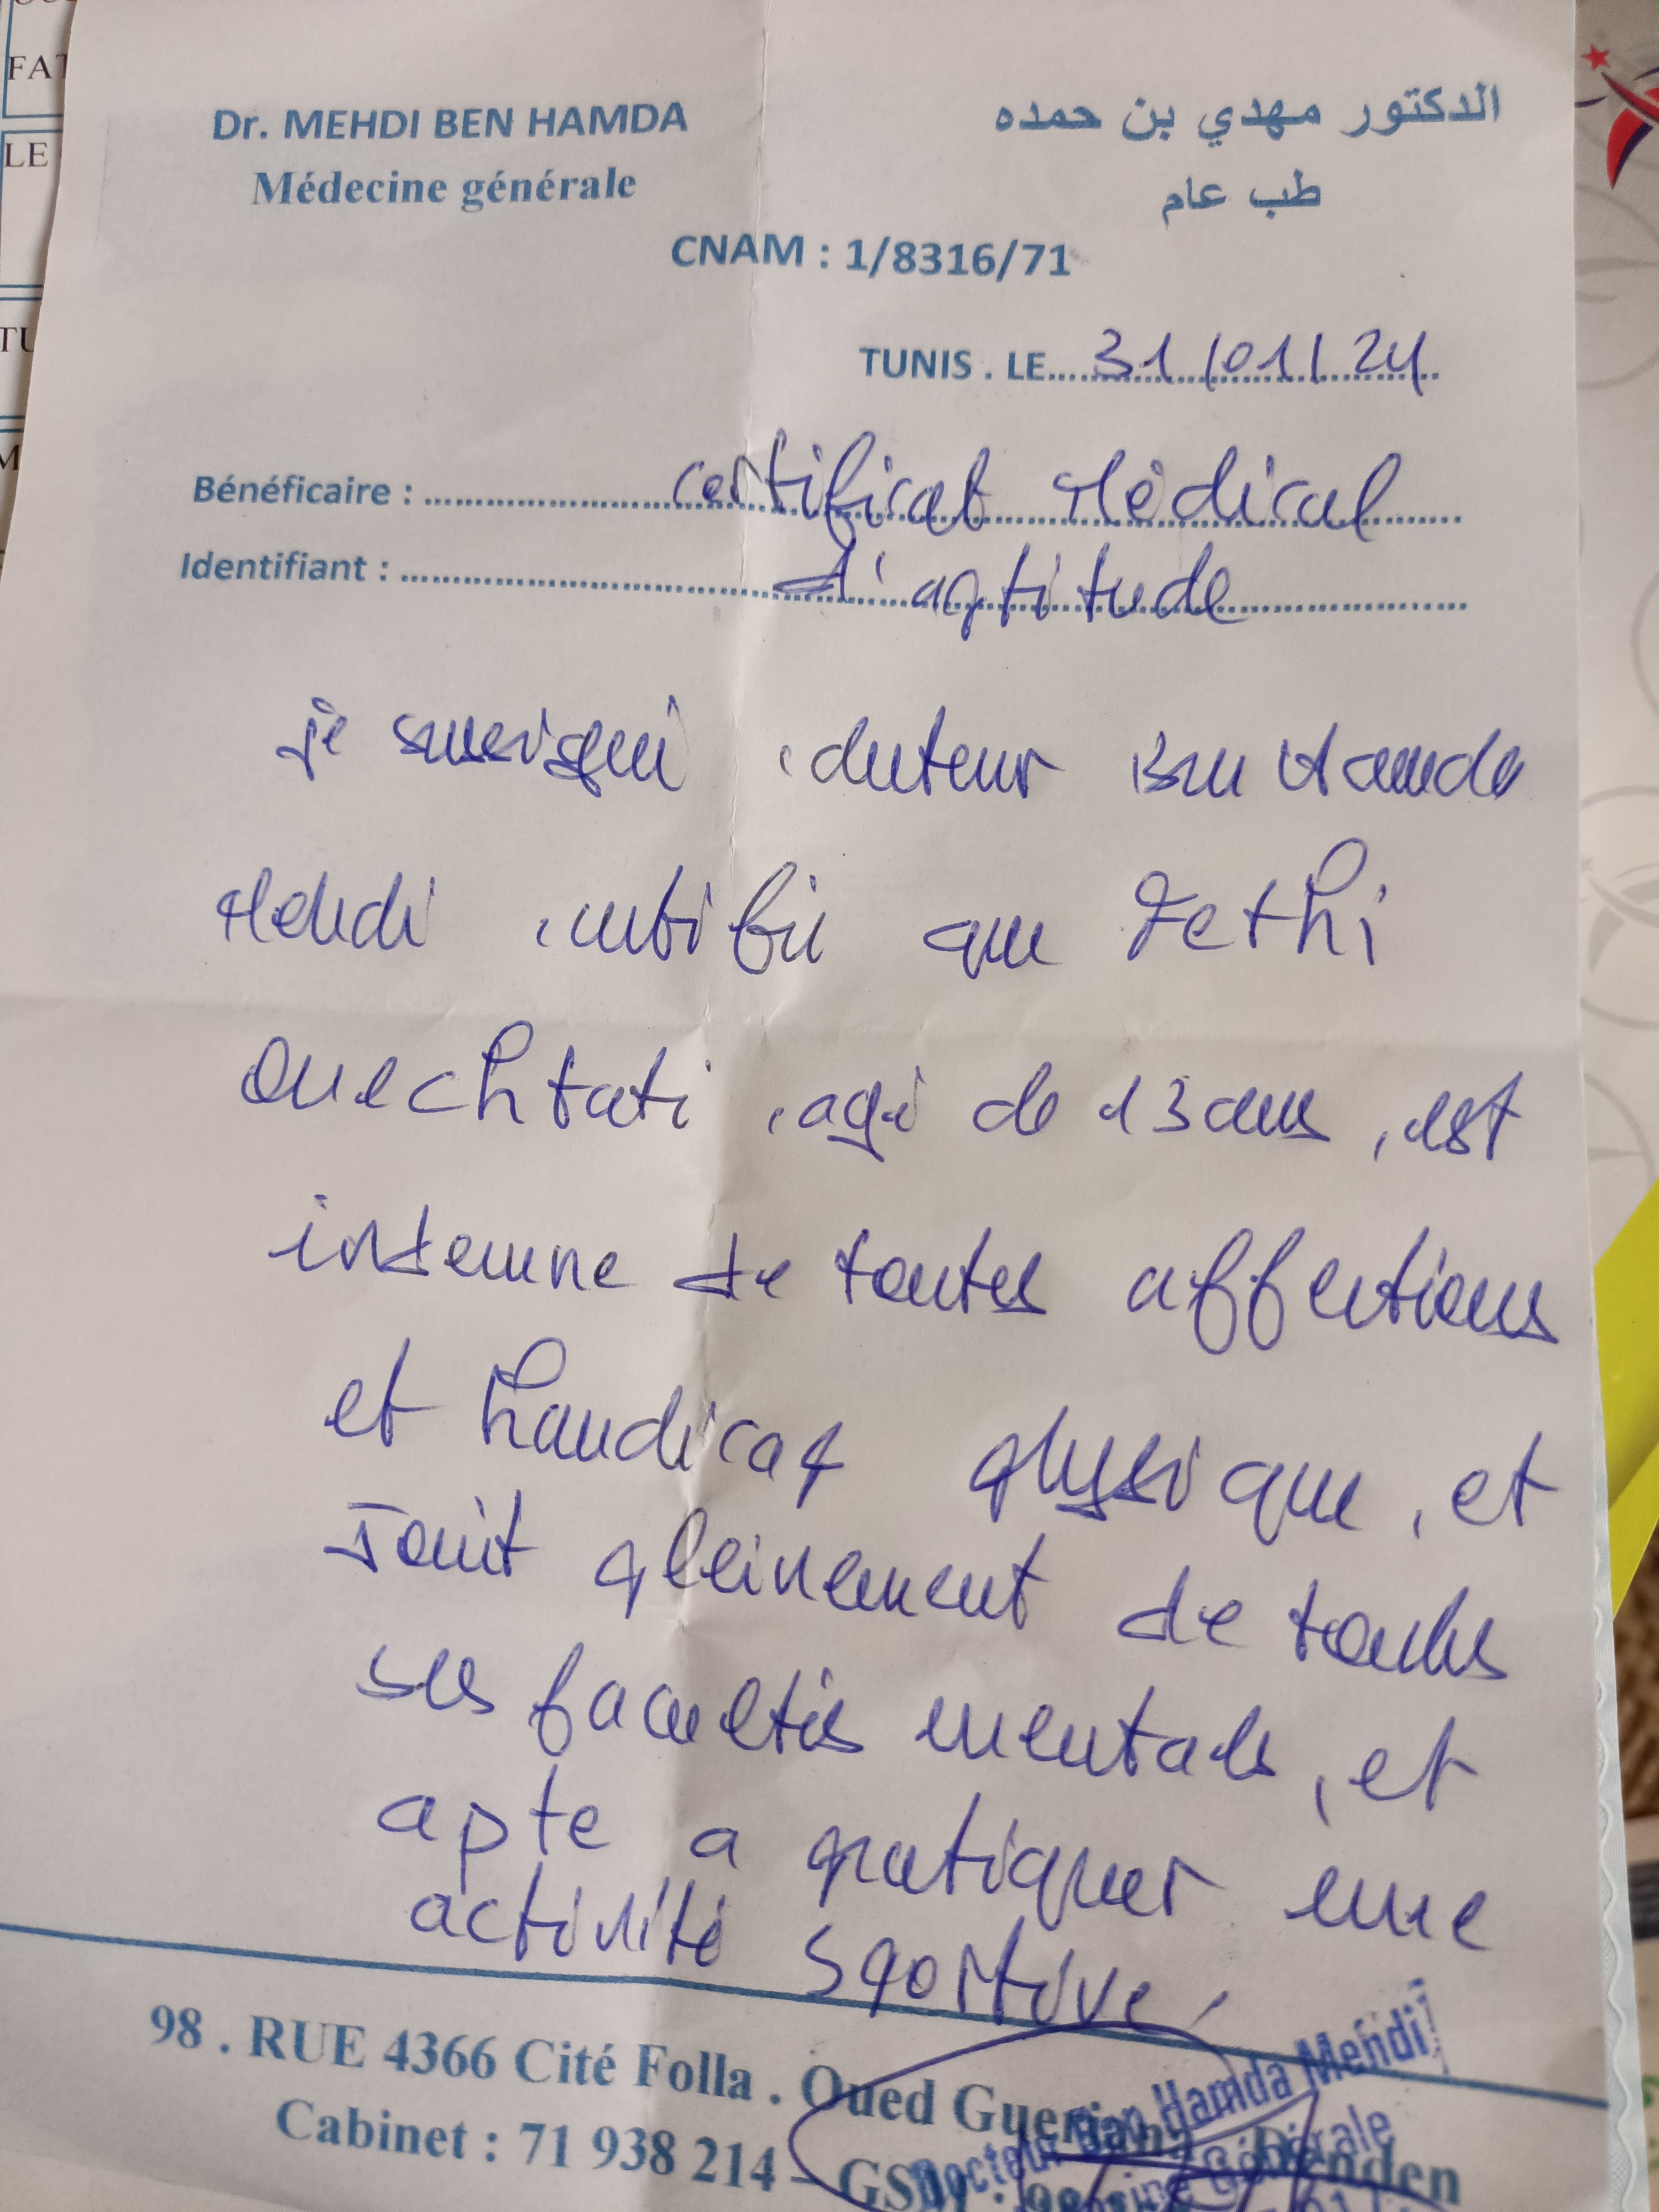 Dr. MEHDI BEN HAMDA
Médecine générale
الدكتور مهدي بن حمده
طب عام
CNAM : 1/8316/71
TUNIS . LE 31/01/24
Bénéficaire : certificat Médical
Identifiant : d'aptitude
je soussigné docteur Ben Hamda
Mehdi certifie que Fethi
Ouechtati, agé de 13 ans, est
indemne de toutes affections
et handicap physique, et
Jouit pleinement de toutes
ses facultés mentales, et
apte a pratiquer une
activité sportive,
98 . RUE 4366 Cité Folla . Oued Gueriana Denden
Cabinet : 71 938 214 - GSM :
Docteur Ben Hamda Mehdi
Générale
FAT
LE
TU
M